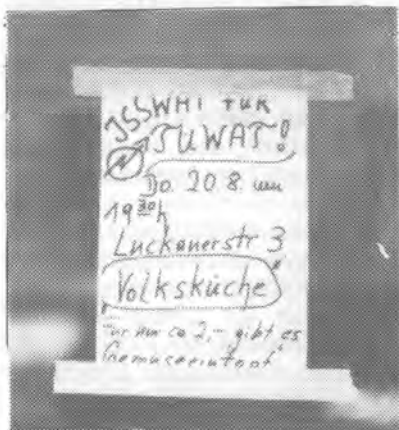 ISSWAT FÜR
TUWAT!
Do. 20.8. um
19 30 h
Luckauerstr 3
Volksküche
Für nur ca 2,- gibt es
Gemüseeintopf